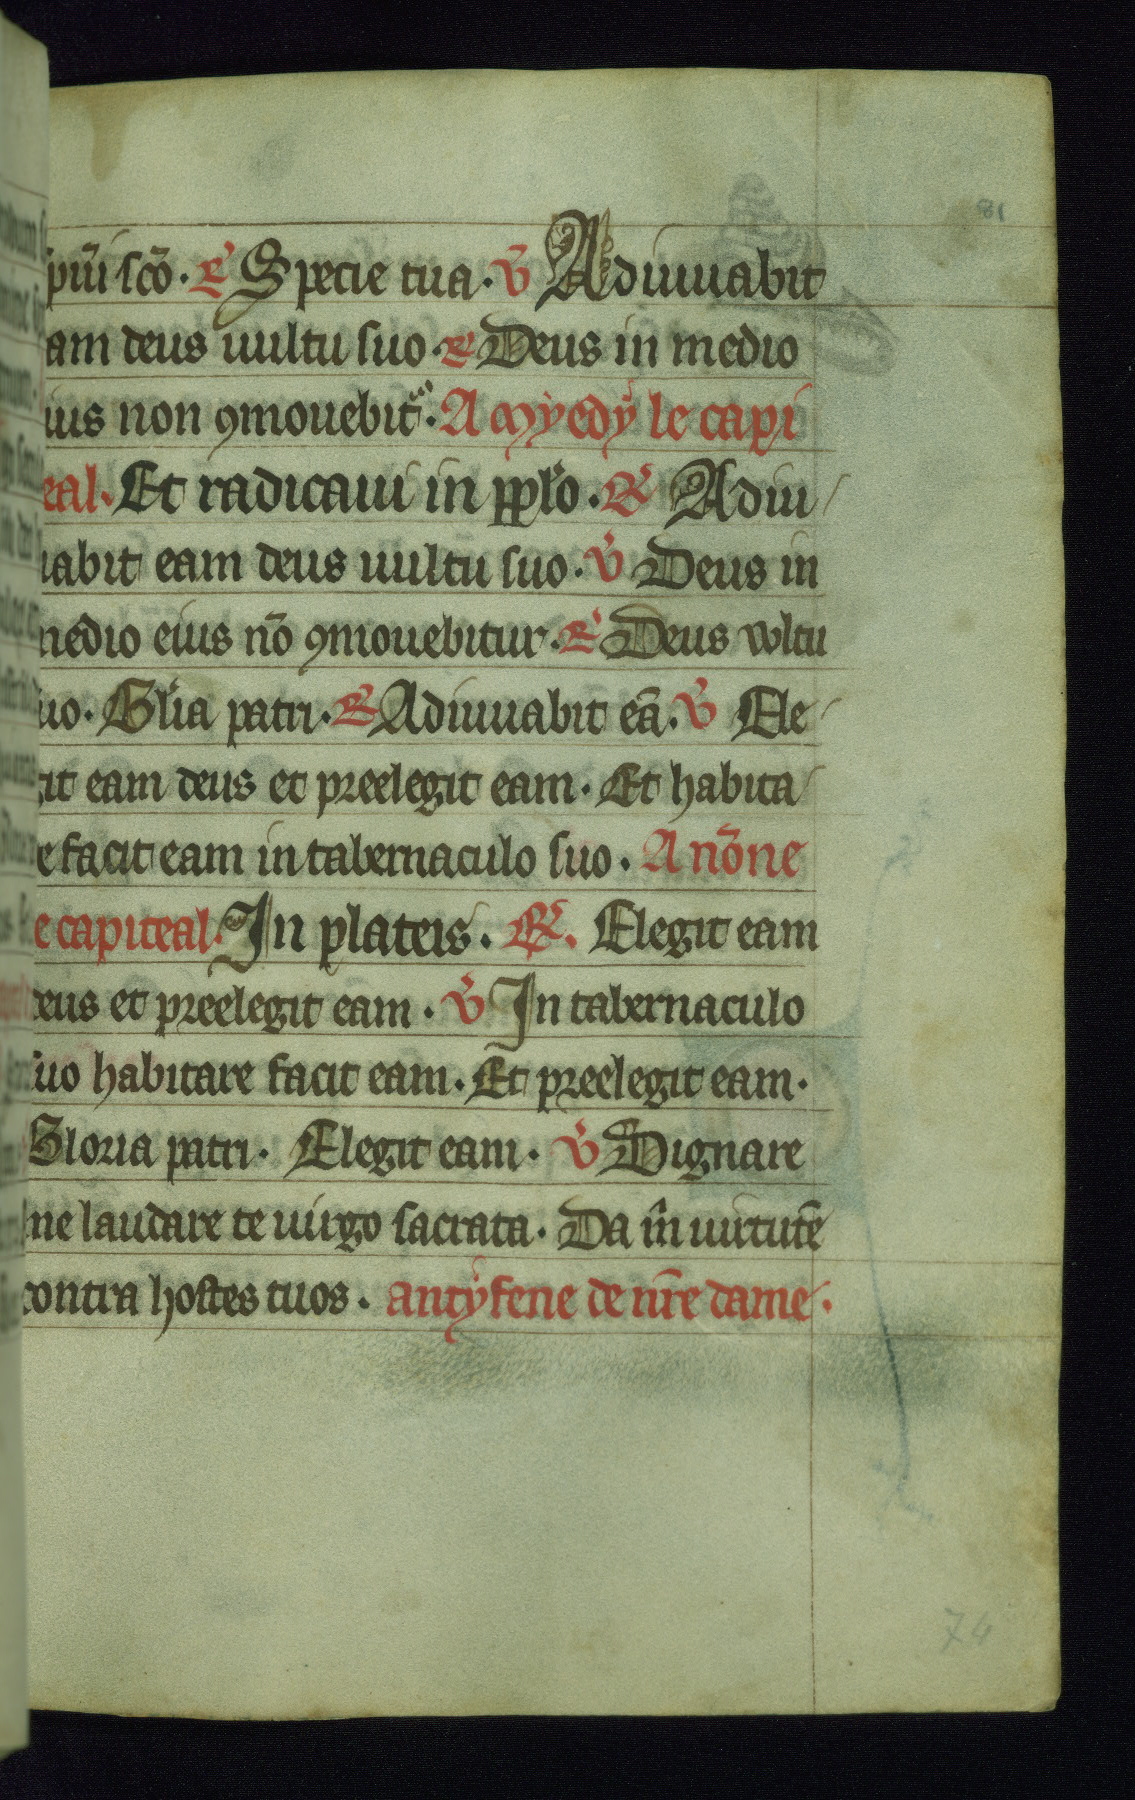 81
spũi sc̃o. R Specie tua. V̾ Adiuuabit
eam deus uultu suo. R Deus in medio
eius non ꝯmouebit᷑. A myedy le capi
teal. Et radicaui in pplo. R Adiu
uabit eam deus uultu suo. V̾ Deus in
medio eius nõ ꝯmouebitur. R Deus wltu
suo. Gl̃ia patri. R Adiuuabit eã. V̾ Ele
git eam deus et preelegit eam. Et habita
re facit eam in tabernaculo suo. A nõne
le capiteal. In plateis. R. Elegit eam
deus et preelegit eam. V̾ In tabernaculo
suo habitare facit eam. Et preelegit eam.
Gloria patri. Elegit eam. V̾ Dignare
me laudare te uirgo sacrata. Da m̃ uirtutẽ
contra hostes tuos. antyfene de nr̃e dame.
74